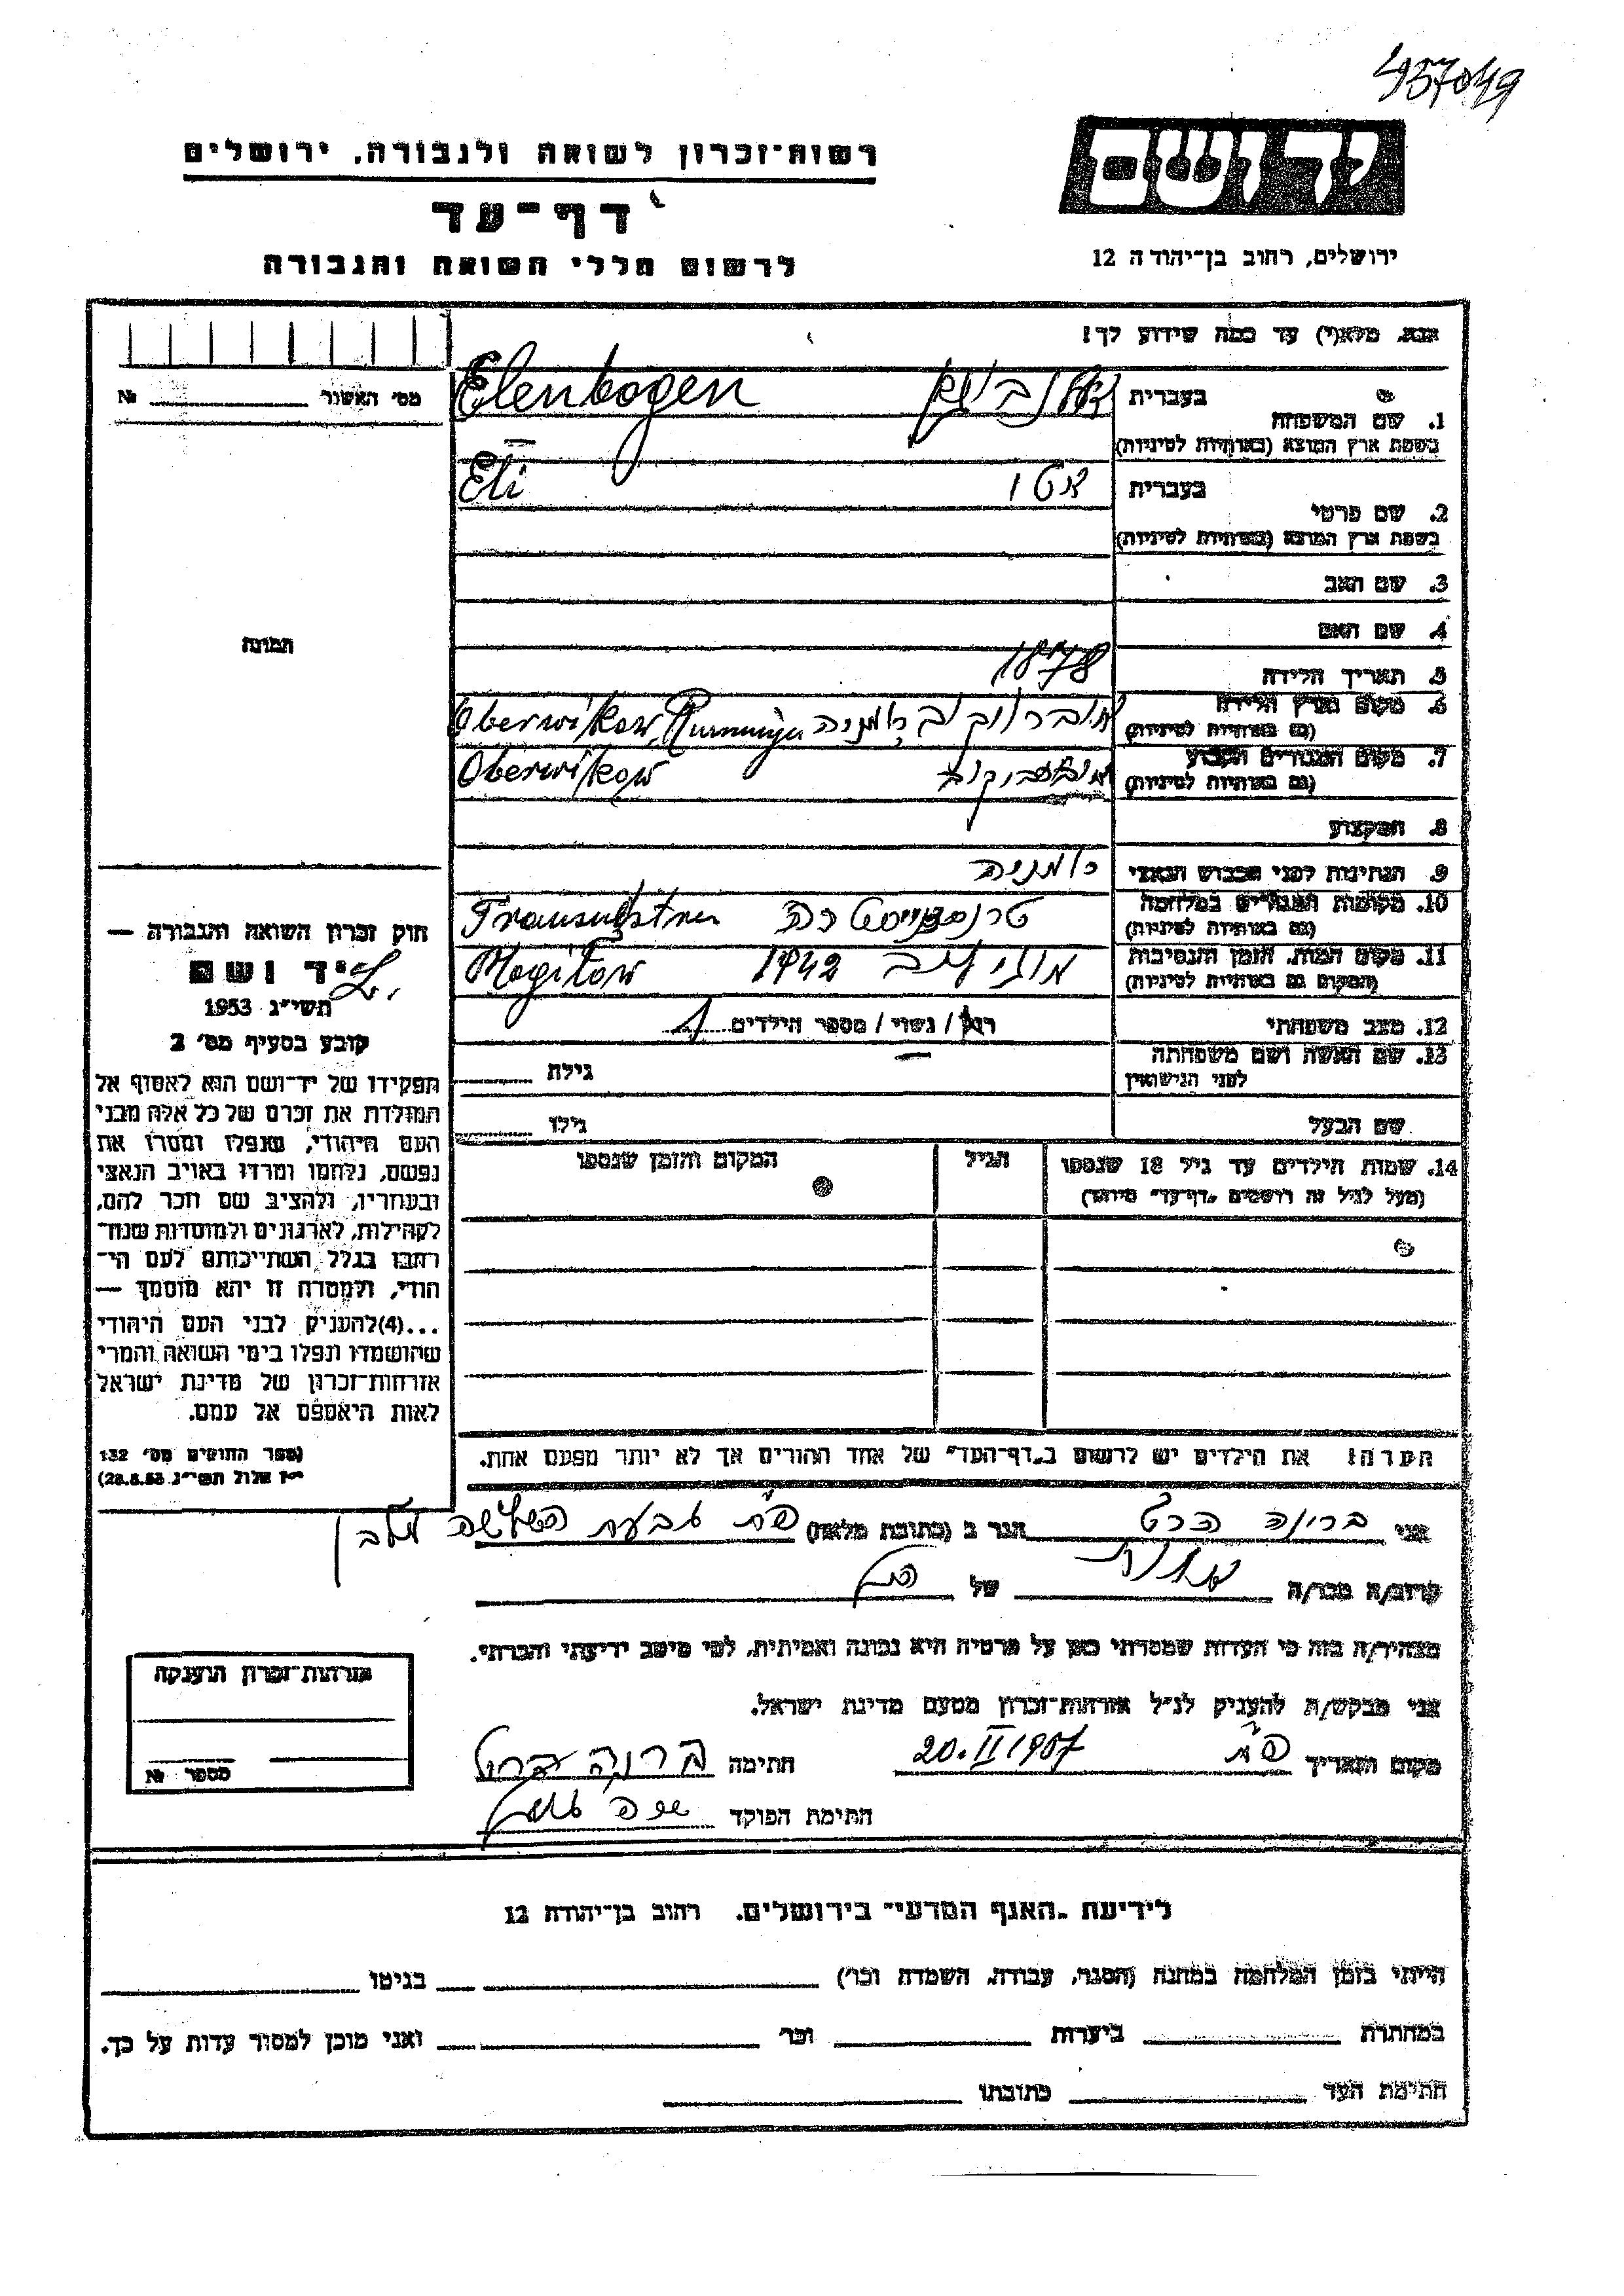 457049
רשות־זכרון לשואה ולגבורה, ירושלים
יד ושם
דף־עד
ירושלים, רחוב בן־יהודה 12
לרשום חללי השואה והגבורה
אנא, מלא(י) עד כמה שידוע לך!
מס' האשור №
בעברית
Elenbogen
1. שם המשפחה
בשפת ארץ המוצא (באותיות לטיניות)
בעברית
Eti
אטי
2. שם פרטי
בשפת ארץ המוצא (באותיות לטיניות)
3. שם האב
4. שם האם
התמונה
5. תאריך הלידה 1878
6. מקום וארץ הלידה
(גם באותיות לטיניות)
Oberwikow, Rumunija
רומניה
7. מקום המגורים הקבוע
(גם באותיות לטיניות)
Oberwikow
8. המקצוע
9. הנתינות לפני הכבוש הנאצי רומניה
10. מקומות המגורים במלחמה
(גם באותיות לטיניות)
11. מקום המות, הזמן והנסיבות
(המקום גם באותיות לטיניות)
Mogilow 1942
12. מצב משפחתי
רוק / נשוי / מספר הילדים
13. שם האשה ושם משפחתה
לפני הנישואין
גילה
שם הבעל
גילו
14. שמות הילדים עד גיל 18 שנספו
(מעל לגיל זה רושמים „דף־עד” מיוחד)
הגיל
המקום והזמן שנספו
חוק זכרון השואה והגבורה —
יד ושם
תשי"ג 1953
קובע בסעיף מס' 2
תפקידו של יד־ושם הוא לאסוף אל
המולדת את זכרם של כל אלה מבני
העם היהודי, שנפלו ומסרו את
נפשם, נלחמו ומרדו באויב הנאצי
ובעוזריו, ולהציב שם וזכר להם,
לקהילות, לארגונים ולמוסדות שנח־
רבו בגלל השתייכותם לעם הי־
הודי, ולמטרה זו יהא מוסמך —
...(4)להעניק לבני העם היהודי
שהושמדו ונפלו בימי השואה והמרי
אזרחות־זכרון של מדינת ישראל
לאות היאספם אל עמם.
(ספר החוקים מס' 132
י"ז אלול תשי"ג 28.8.53)
הערה: את הילדים יש לרשום ב„דף־העד” של אחד ההורים אך לא יותר מפעם אחת.
אני ברונה הרט הגר ב (כתובת מלאה) פ"ת גבעת השלשה
קרוב/ה מכר/ה של
מצהיר/ה בזה כי העדות שמסרתי כאן על פרטיה היא נכונה ואמיתית, לפי מיטב ידיעתי והכרתי.
אני מבקש/ת להעניק לנ"ל אזרחות־זכרון מטעם מדינת ישראל.
מקום ותאריך פ"ת 20.II 1957 חתימה ברונה הרט
חתימת הפוקד
אזרחות־זכרון הוענקה
מספר №
לידיעת „האגף המדעי” בירושלים, רחוב בן־יהודה 12
הייתי בזמן המלחמה במחנה (הסגר, עבודה, השמדה וכו') בגיטו
במחתרת ביערות וכו' ואני מוכן למסור עדות על כך.
חתימת העד כתובתו